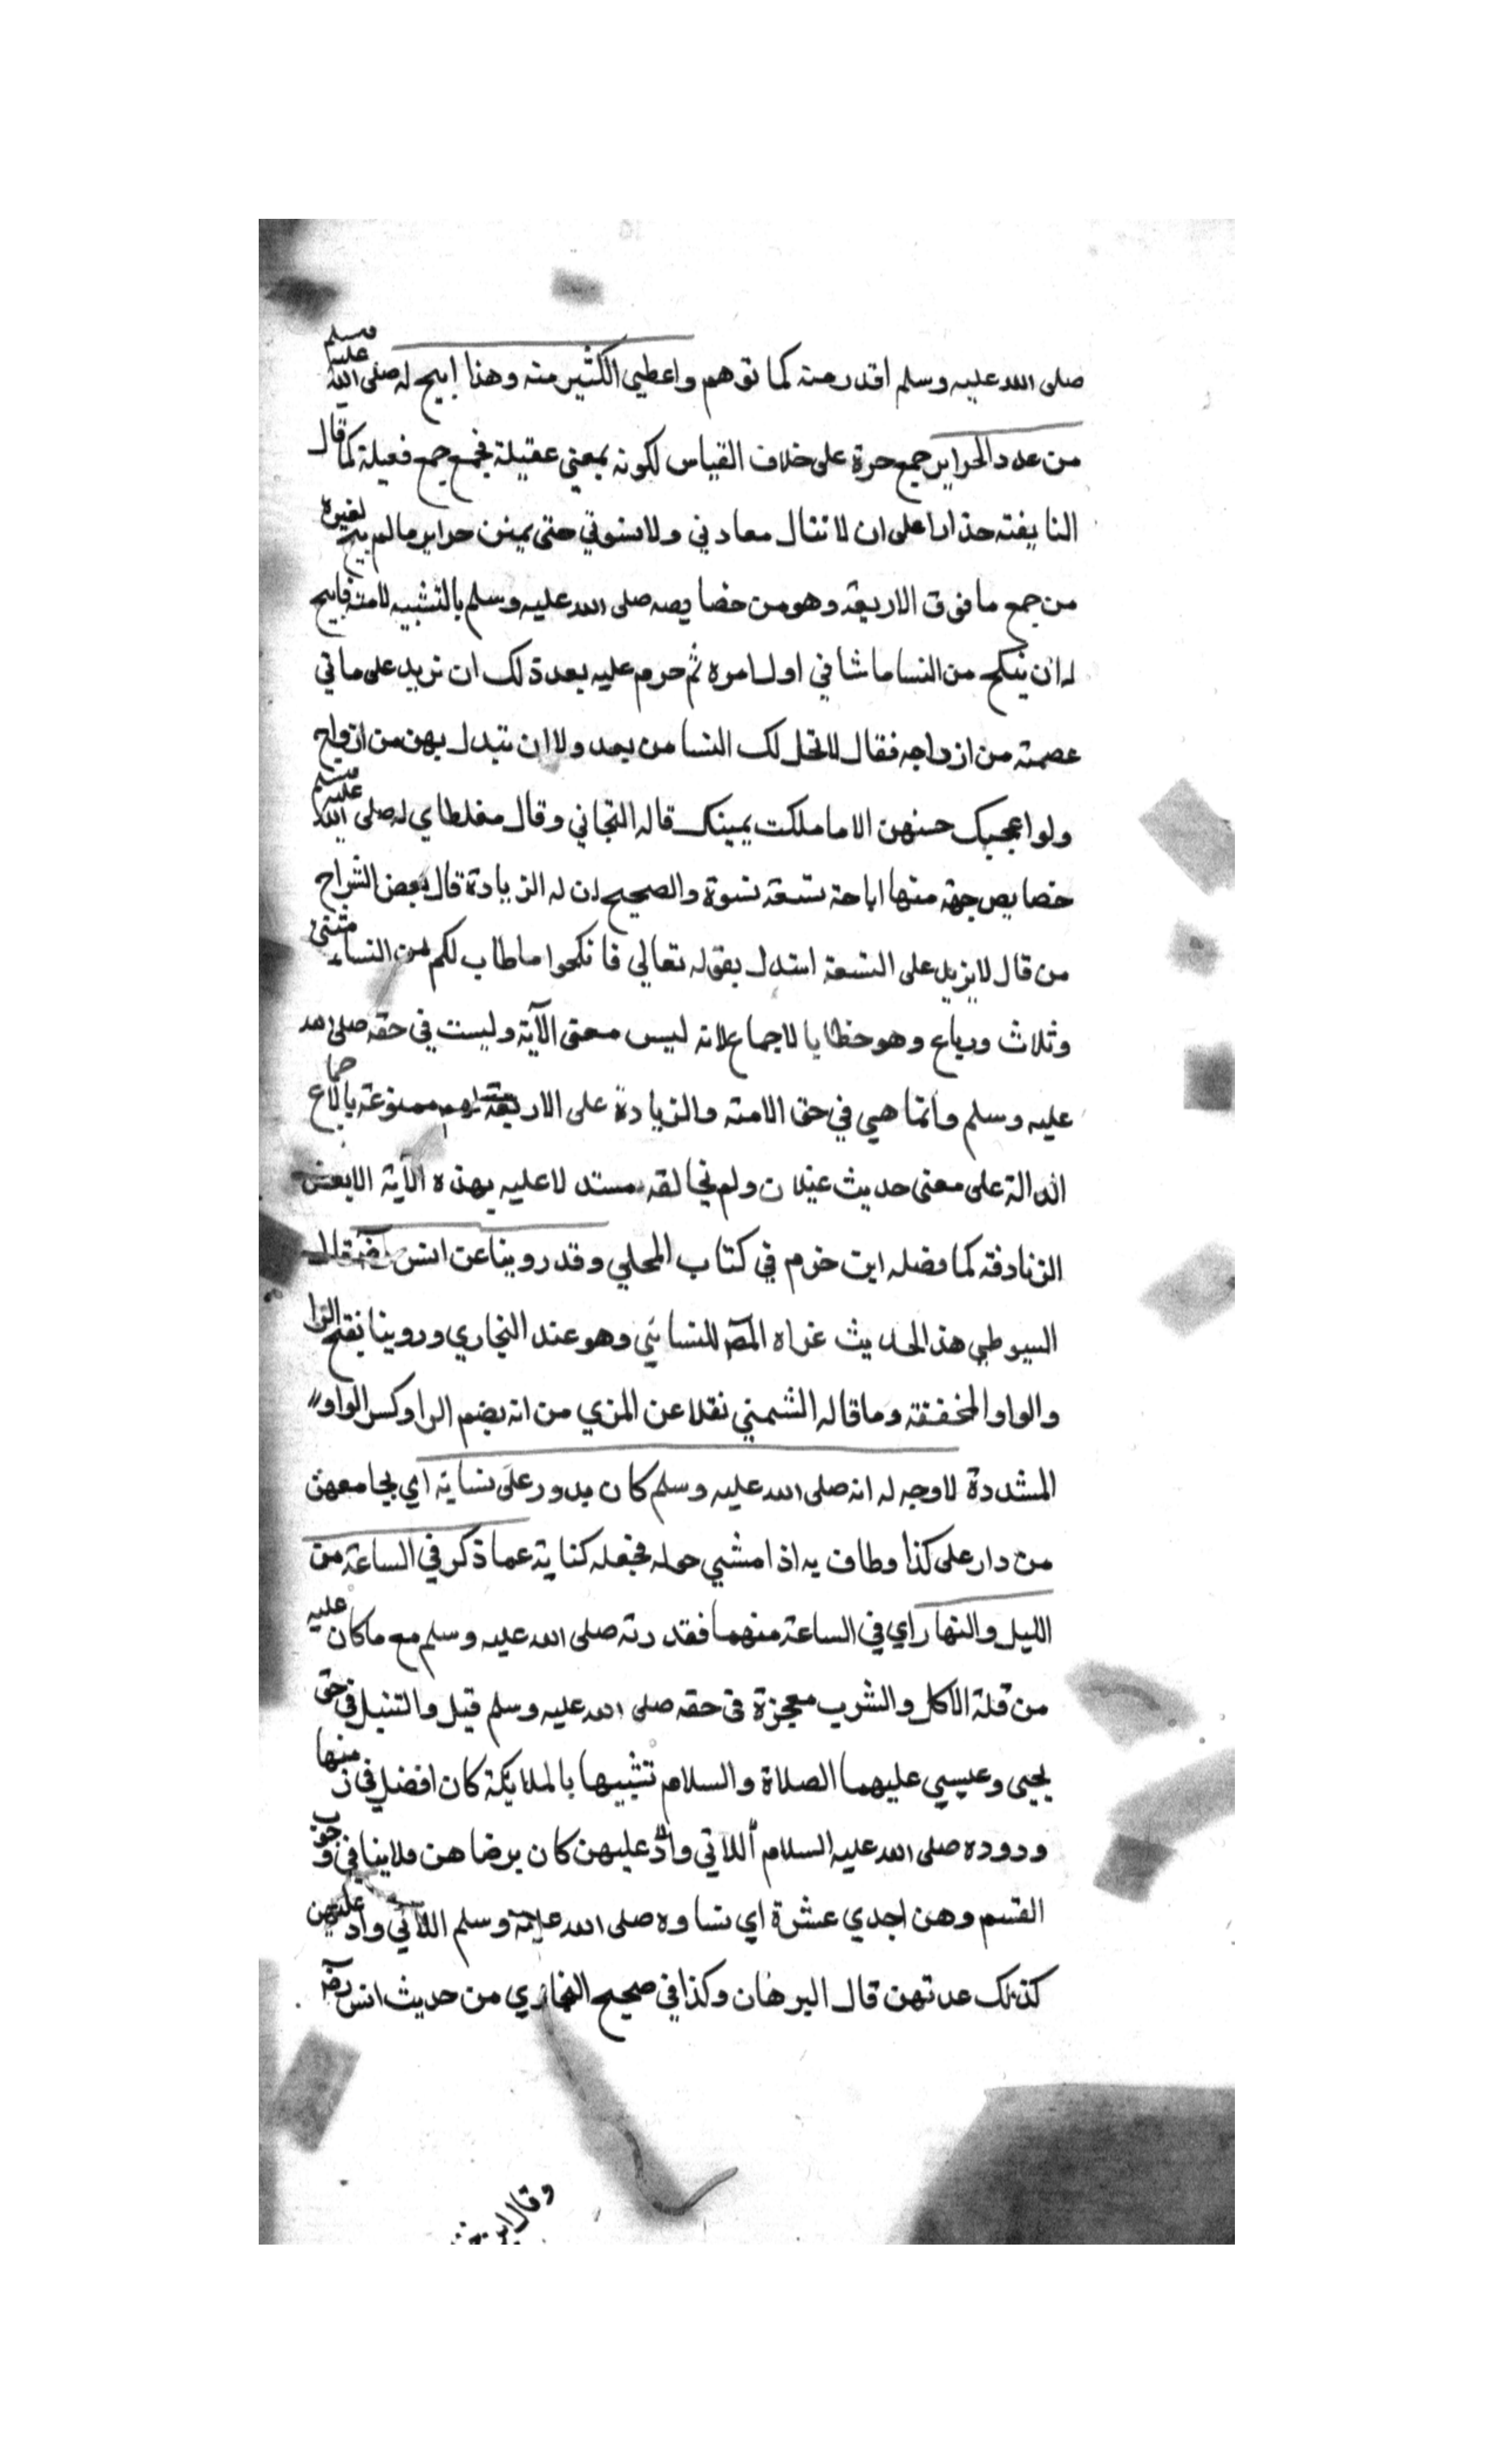 صلى الله عليه وسلم اقدر منه كما توهم واعطي الكثير منه وهذا ابيح له صلى الله عليه وسلم
من عدد الحراير جمع حرة على خلاف القياس لكونه بمعنى عقيلة فجمع جمع فعيلة كما قال
النابغة حذارا على ان لا تنال معادتي ولا نسوتي حتى يمتن حراير ما لم يبح لغيره
من جمع ما فوق الاربعة وهو من خصايصه صلى الله عليه وسلم بالتشبيه لامته فابيح
له ان ينكح من النسا ما شا في اول امره ثم حرم عليه بعد ذلك ان نزيد على ما في
عصمته من ازواجه فقال لا تحل لك النسا من بعد ولا ان تتبدل بهن من ازواج
ولو اعجبك حسنهن الا ما ملكت يمينك قاله التجاني وقال مغلطاي له صلى الله عليه وسلم
خصايص جهة منها اباحة تسعة نسوة والصحيح ان له الزيادة قال بعض الشراح
من قال لا يزيد على التسعة استدل بقوله تعالي فانكحوا ما طاب لكم من النساء مثنى
وثلاث ورباع وهو خطا بالاجماع لانه ليس معنى الآية وليست في حقه صلى الله
عليه وسلم وانما هي في حق الامة والزيادة على الاربعة لهم ممنوعة بالاجماع
الدالة على معنى حديث غيلان ولم يخالفه مستدلا عليه بهذه الآية الا بعض
الزنادقة كما فصله ابن حزم في كتاب المحلي وقد روينا عن انس رضه قال
السيوطي هذا الحديث عزاه المص للنسائي وهو عند البخاري وروينا بفتح الرا
والواو المخففة وما قاله الشمني نقلا عن المزي من انه بضم الرا وكسر الواو
المشددة لا وجه له انه صلى الله عليه وسلم كان يدور على نسايه اي يجامعهن
من دار على كذا وطاف به اذا مشي حوله فجعله كناية عما ذكر في الساعة من
الليل والنهار اي في الساعة منهما فقدرته صلى الله عليه وسلم مع ما كان عليه
من قلة الاكل والشرب معجزة في حقه صلى الله عليه وسلم قيل والتبتل في حق
يحيى وعيسي عليهما الصلاة والسلام تشبيها بالملايكة كان افضل في زمنها
ودوره صلى الله عليه السلام اللاتي واد عليهن كان برضاهن فلا ينافي وجوب
القسم وهن احدي عشرة اي نساوه صلى الله عليه وسلم اللاتي واد عليهن
كذلك عدتهن قال البرهان وكذا في صحيح البخاري من حديث انس رضه
وقال ابن